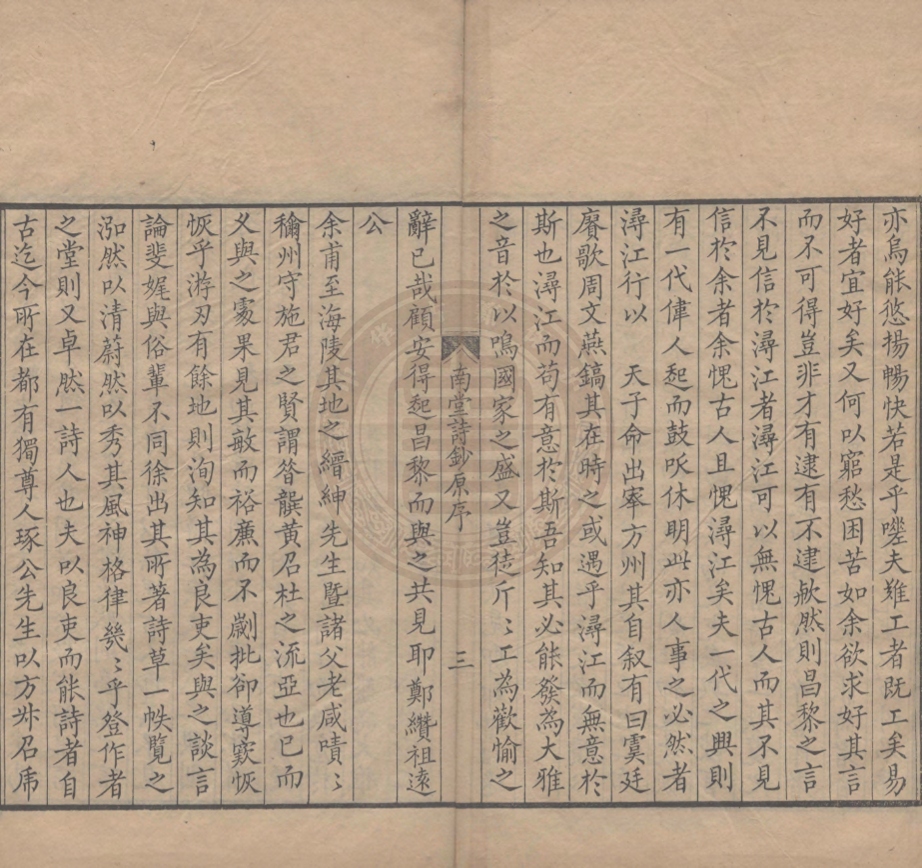 亦烏能悠揚暢快若是乎嗟夫難工者既工矣易
好者宜好矣又何以窮愁困苦如余欲求好其言
而不可得豈非才有逮有不逮歟然則昌黎之言
不見信於潯江者潯江可以無愧古人而其不見
信於余者余愧古人且愧潯江矣夫一代之興則
有一代偉人起而鼓吹休明此亦人事之必然者
潯江行以 天子命出宰方州其自叙有曰虞廷
賡歌周文燕鎬其在時之或遇乎潯江而無意於
斯也潯江而苟有意於斯吾知其必能發為大雅
之音於以鳴國家之盛又豈徒斤〻工為歡愉之
南堂詩鈔原序 三
辭已哉顧安得起昌黎而與之共見耶鄭纘祖遠
公
余甫至海陵其地之縉紳先生暨諸父老咸嘖〻
稱州守施君之賢謂咎龔黃召杜之流亞也已而
乆與之處果見其敏而裕廉而不劌批卻導窾恢
恢乎游刃有餘地則洵知其為良吏矣與之談言
論斐娓與俗輩不同徐出其所著詩草一帙覽之
泓然以清蔚然以秀其風神格律幾〻乎登作者
之堂則又卓然一詩人也夫以良吏而能詩者自
古迄今所在都有獨尊人琢公先生以方州召席